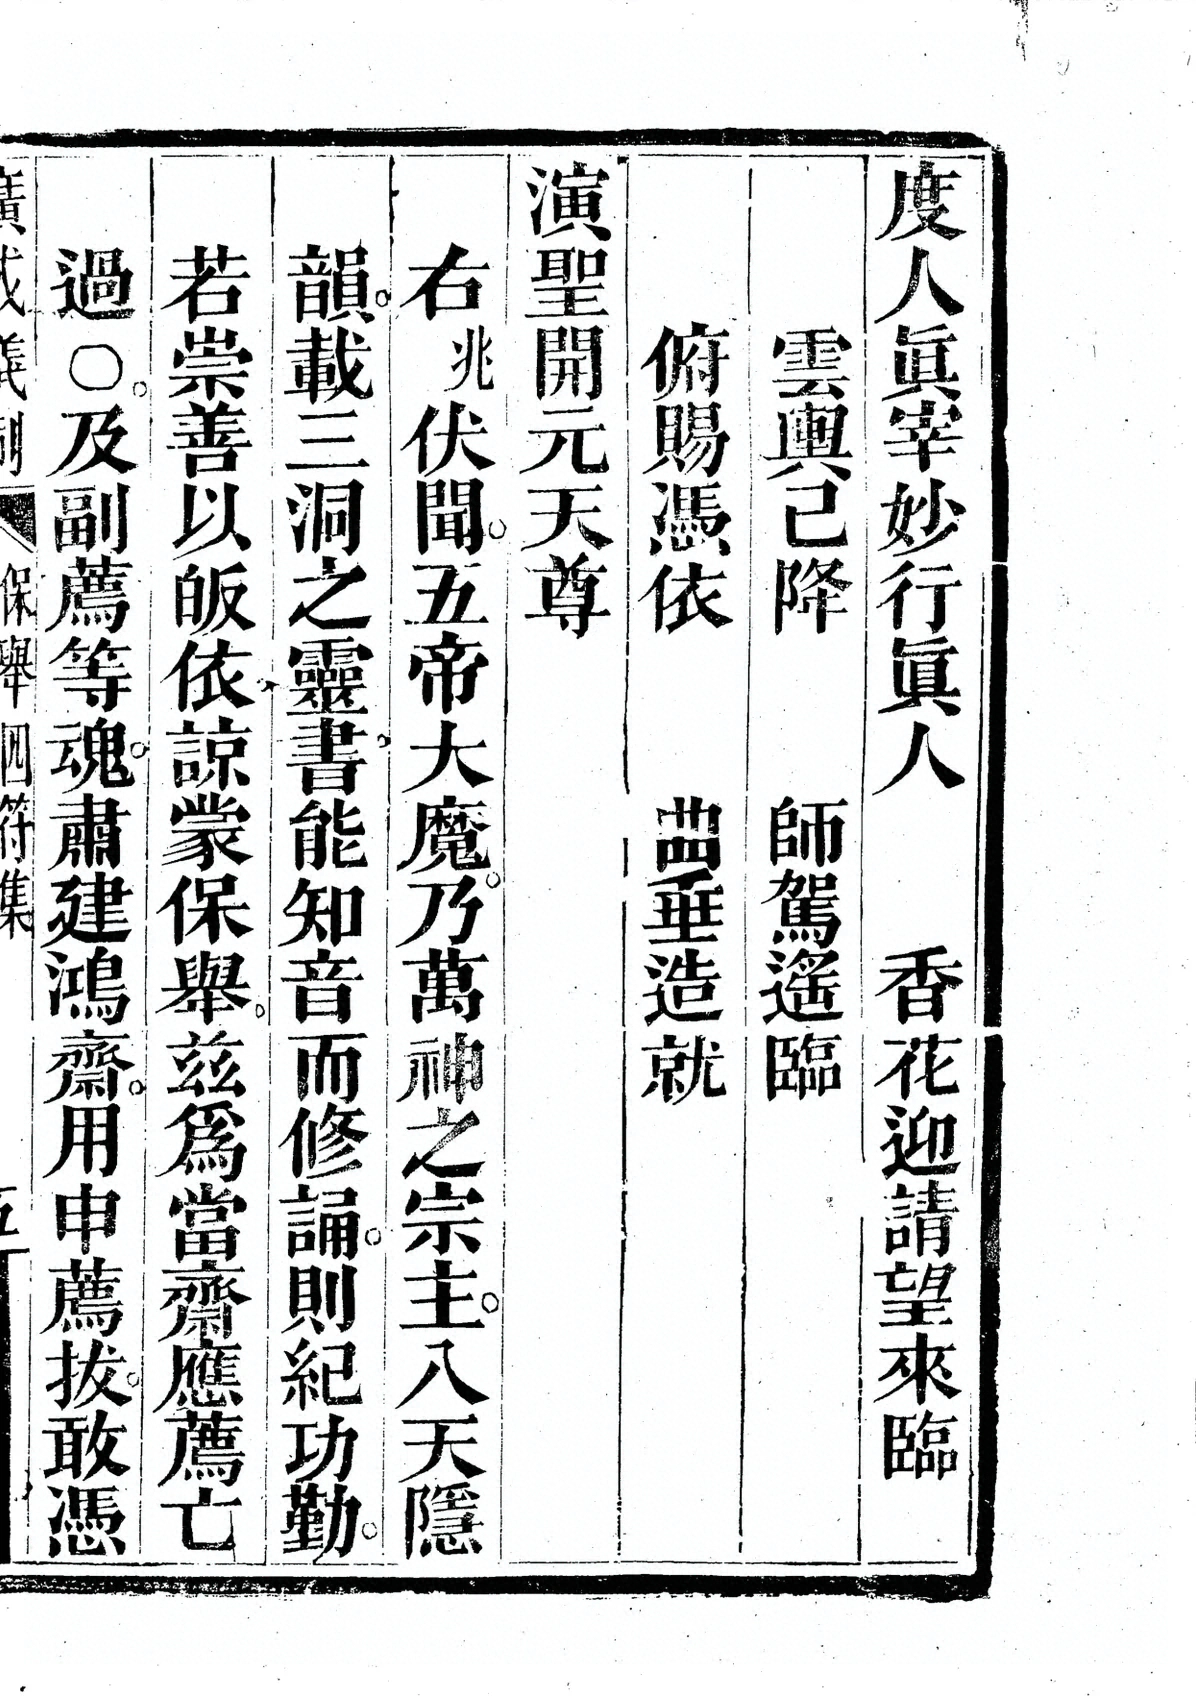 度人眞宰妙行眞人　香花迎請望來臨
雲輿已降　師駕遙臨
俯賜憑依　曲垂造就
演聖開元天尊
右兆伏聞。五帝大魔。乃萬神之宗主。八天隱
韻。載三洞之靈書。能知音而修誦。則紀功勤。
若崇善以皈依、諒蒙保舉。茲爲當齋應薦亡
過〇。及副薦等魂。肅建鴻齋。用申薦拔。敢憑
廣成儀制　保舉四符集　五